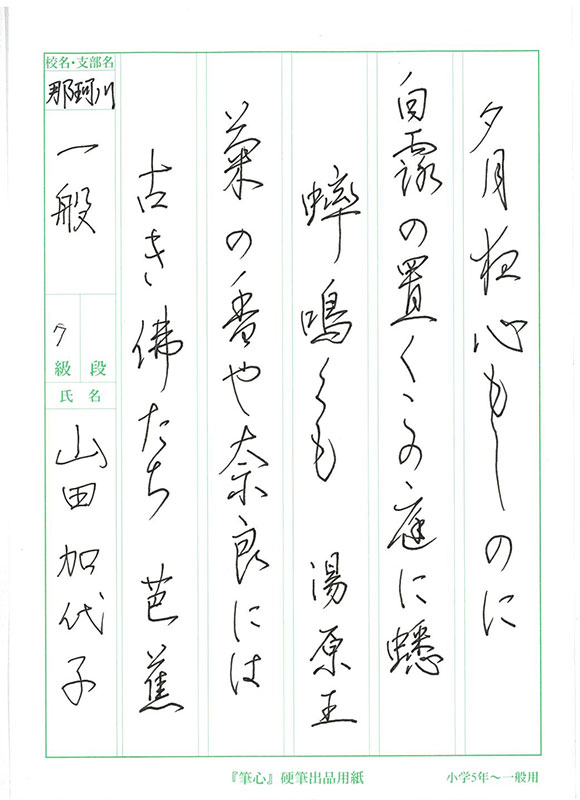 夕月夜心もしのに
白露の置くこの庭に蟋
蟀鳴くも 湯原王
菊の香や奈良には
古き佛たち 芭蕉
校名・支部名
那珂川
一般
段
級
氏名
山田加代子
『筆心』硬筆出品用紙
小学5年〜一般用